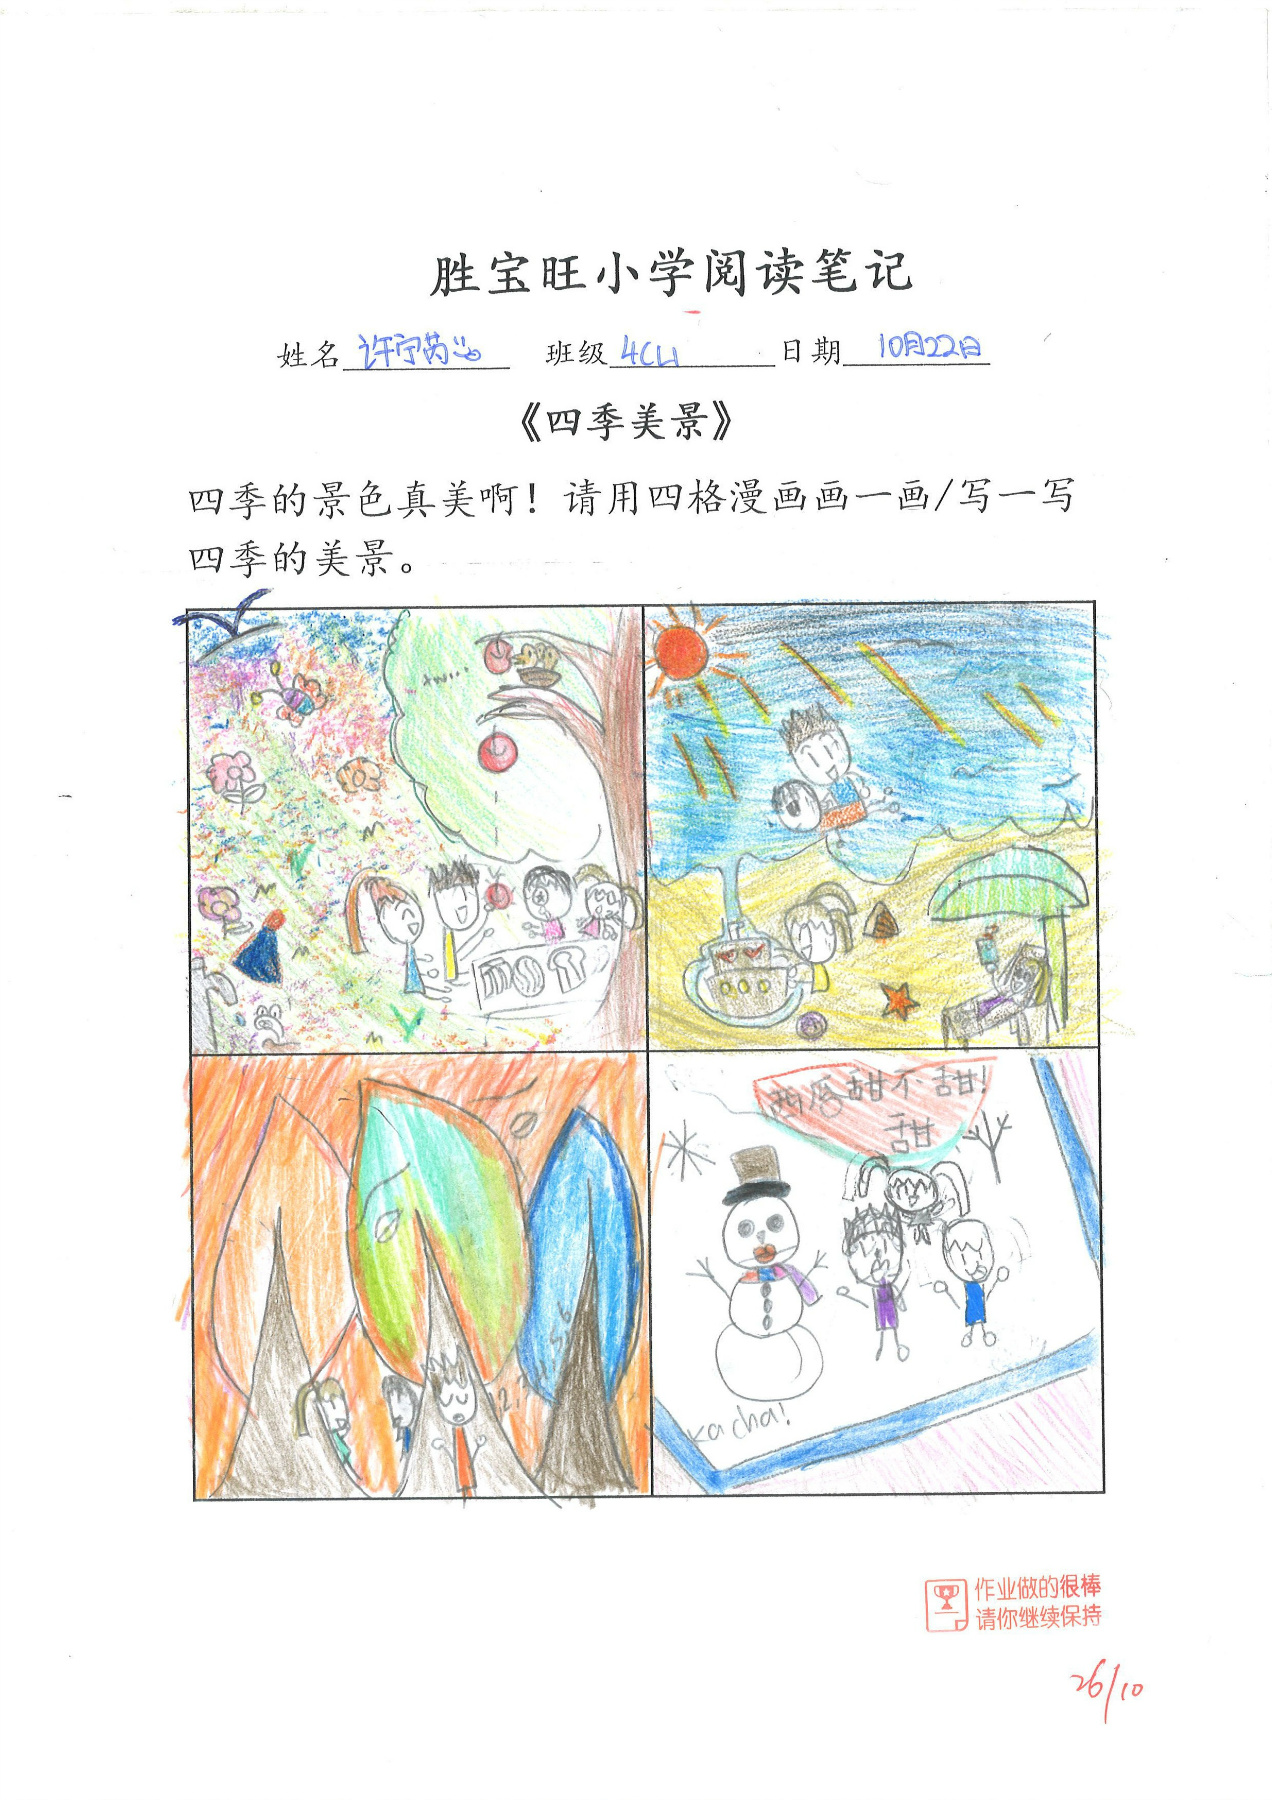 胜宝旺小学阅读笔记
姓名 许宁芮 班级 4CL1 日期 10月22日
《四季美景》
四季的景色真美啊！请用四格漫画画一画/写一写
四季的美景。
甜不甜!
甜
kacha!
作业做的很棒
请你继续保持
26/10